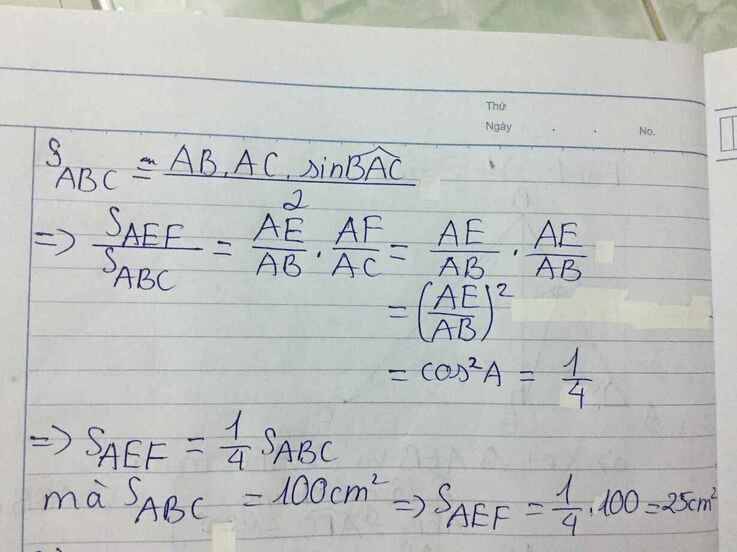 Thứ
Ngày . . No.
S_ABC = (AB.AC.sinBAC^)/2
=> S_AEF/S_ABC = AE/AB . AF/AC = AE/AB . AE/AB
= (AE/AB)²
= cos²A = 1/4
=> S_AEF = 1/4 S_ABC
mà S_ABC = 100cm² => S_AEF = 1/4.100 = 25cm²